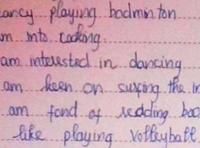 ancy playing badminton
m into cooking
am interested in dancing
am keen on surfing the in
am fond of reading boo
like playing volleyball